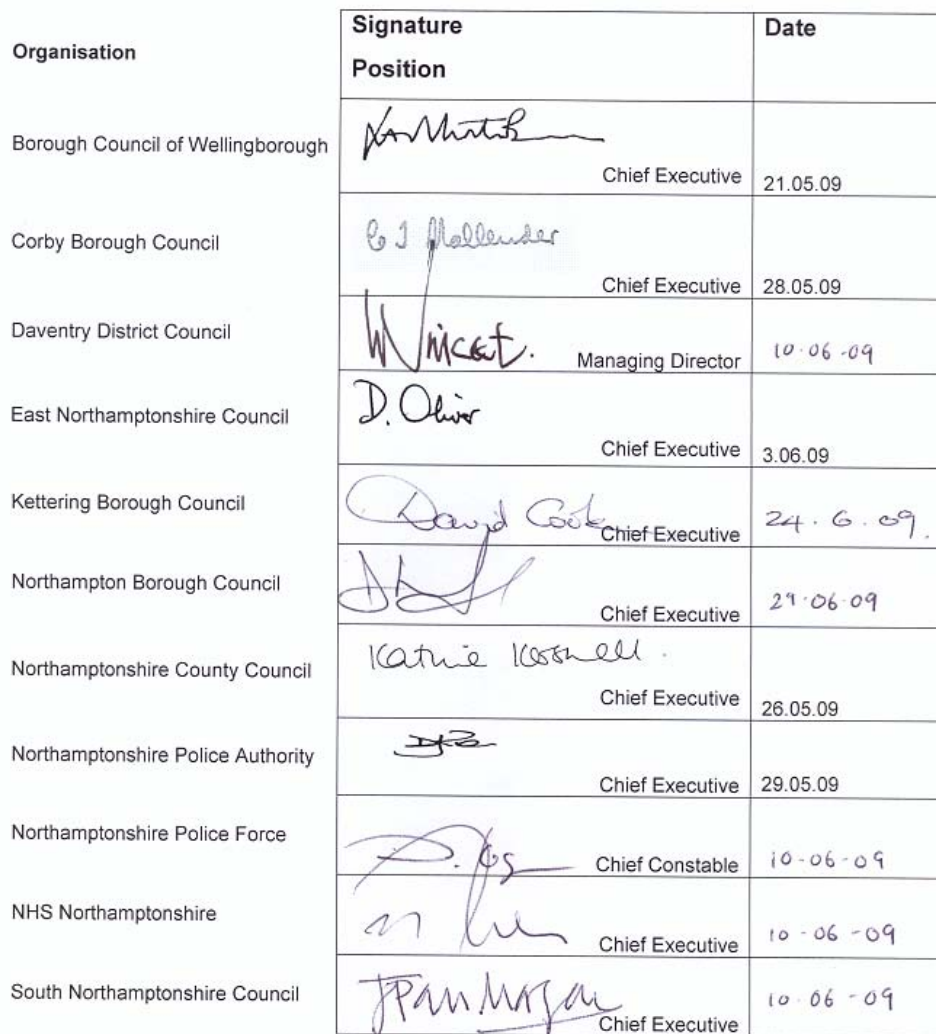 Organisation Signature Date
Position
Borough Council of Wellingborough
Chief Executive 21.05.09
Corby Borough Council
Chief Executive 28.05.09
Daventry District Council
Managing Director 10.06-09
East Northamptonshire Council D. Oliver
Chief Executive 3.06.09
Kettering Borough Council David Cook Chief Executive 24.6.09.
Northampton Borough Council
Chief Executive 29.06.09
Northamptonshire County Council
Chief Executive 26.05.09
Northamptonshire Police Authority
Chief Executive 29.05.09
Northamptonshire Police Force
Chief Constable 10-06-09
NHS Northamptonshire
Chief Executive 10-06-09
South Northamptonshire Council
Chief Executive 10.06-09